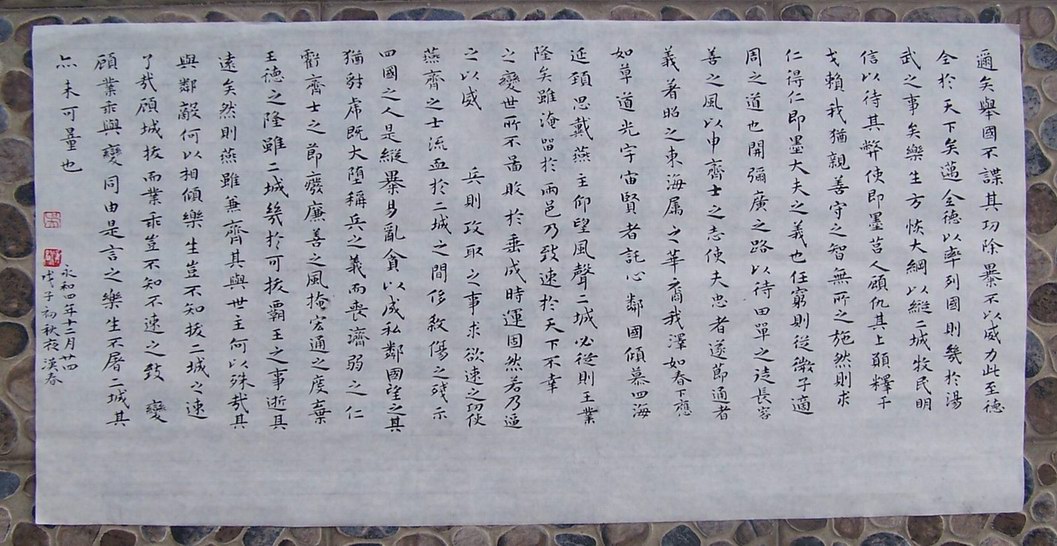 邇矣舉國不謀其功除暴不以威力此至德
全於天下矣邁全德以率列國則幾於湯
武之事矣樂生方恢大綱以縱二城牧民明
信以待其弊使即墨莒人顧仇其上願釋干
戈賴我猶親善守之智無所之施然則求
仁得仁即墨大夫之義也任窮則從微子適
周之道也開彌廣之路以待田單之徒長容
善之風以申齊士之志使夫忠者遂節通者
義著昭之東海屬之華裔我澤如春下應
如草道光宇宙賢者託心鄰國傾慕四海
延頸思戴燕主仰望風聲二城必從則王業
隆矣雖淹留於兩邑乃致速於天下不幸
之變世所不啚敗於垂成時運固然若乃逼
之以威 兵則攻取之事求欲速之功使
燕齊之士流血於二城之間侈殺傷之殘示
四國之人是縱暴易亂貪以成私鄰國望之其
猶豺虎既大墮稱兵之義而喪濟弱之仁
虧齊士之節廢廉善之風掩宏通之度棄
王德之隆雖二城幾於可拔霸王之事逝其
遠矣然則燕雖兼齊其與世主何以殊哉其
與鄰敵何以相傾樂生豈不知拔二城之速
了哉顧城拔而業乖豈不知不速之致 變
顧業乖與變同由是言之樂生不屠二城其
亦未可量也
永和四年十二月廿四
戊子初秋夜漢春